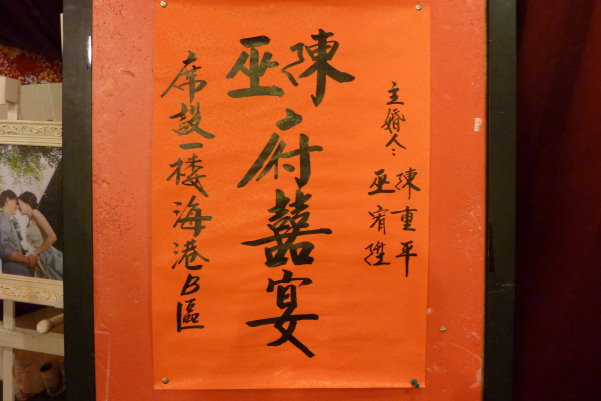 主婚人：陳重平
巫宥陞
陳
巫
府囍宴
席設一楼海港B區